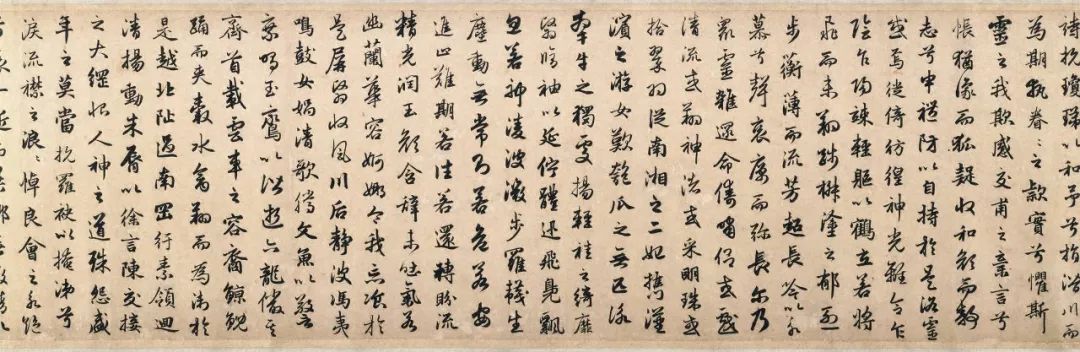 詩抗瓊珶以和予兮指潛川而
為期執眷〻之款實兮懼斯
靈之我欺感交甫之棄言兮
悵猶豫而狐疑收和顏而靜
志兮申禮防以自持於是洛靈
感焉徙倚彷徨神光離合乍
陰乍陽竦輕軀以鶴立若將
飛而未翔踐椒塗之郁烈
步蘅薄而流芳超長吟以永
慕兮聲哀厲而彌長爾乃
眾靈雜遝命儔嘯侶或戲
清流或翔神渚或采明珠或
拾翠羽從南湘之二妃攜漢
濱之游女歎匏瓜之無匹詠
牽牛之獨處揚輕袿之綺靡
翳脩袖以延佇體迅飛鳧飄
忽若神淩波微步羅襪生
塵動無常則若危若安
進止難期若往若還轉盼流
精光潤玉顏含辭未吐氣若
幽蘭華容婀娜令我忘湌於
是屏翳收風川后靜波馮夷
鳴鼓女媧清歌騰文魚以警
乘鳴玉鸞以偕逝六龍儼其
齊首載雲車之容裔鯨鯢
踊而夾轂水禽翔而為衛於
是越北沚過南岡紆素領迴
清揚動朱脣以徐言陳交接
之大綱恨人神之道殊怨盛
年之莫當抗羅袂以掩涕兮
淚流襟之浪〻悼良會之永絕
兮哀一逝而異鄉無微情以